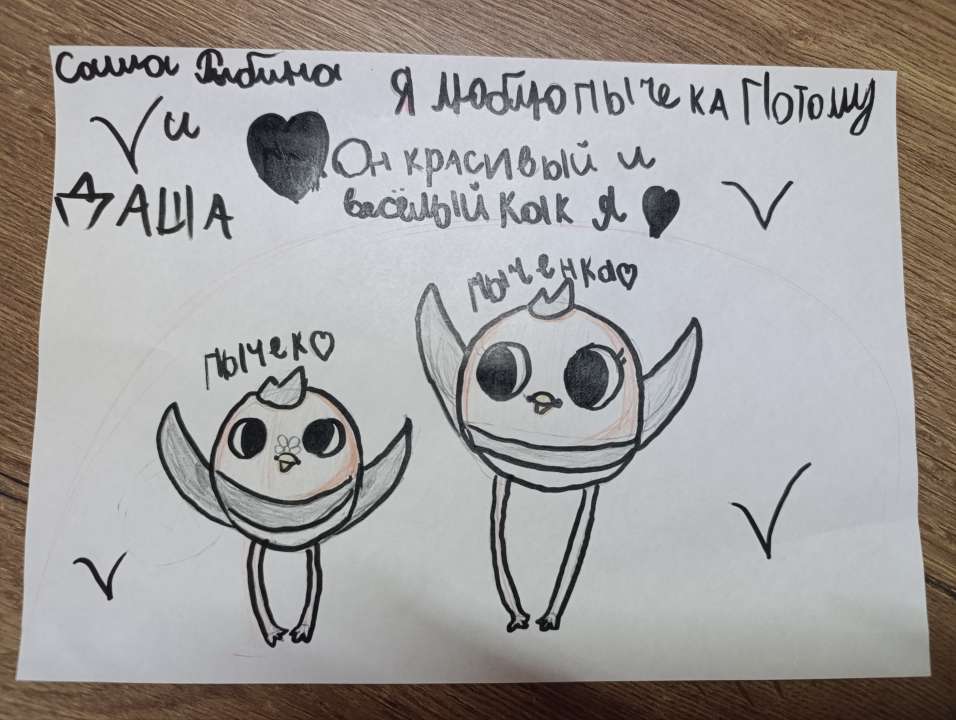 Саша Рябина
и
ДАША
Я люблю пычека Потому
Он красивый и
весёлый как я
пыченка
пычек